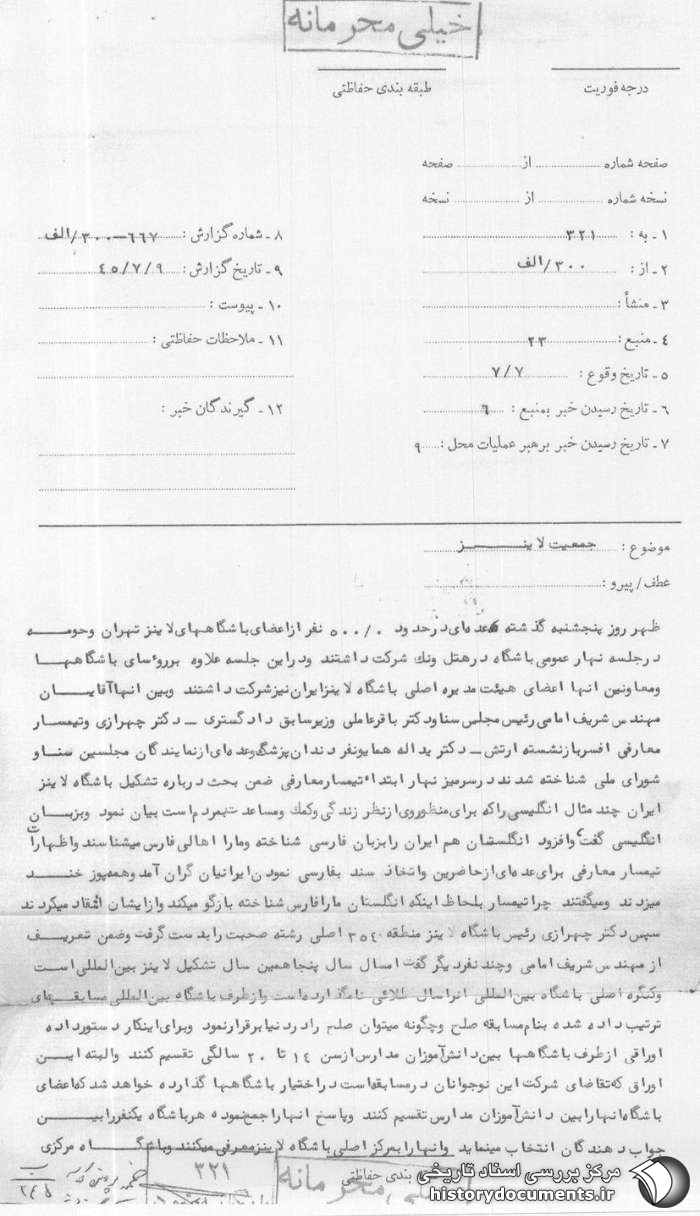 خیلی محرمانه
درجه فوریت
طبقه بندی حفاظتی
صفحه شماره از صفحه
نسخه شماره از نسخه
۱ ـ به : ۳۲۱
۸ ـ شماره گزارش : ۶۶۷ــ۳۰۰/الف
۲ ـ از : ۳۰۰/الف
۹ ـ تاریخ گزارش : ۴۵/۷/۹
۳ ـ منشأ :
۱۰ ـ پیوست :
۴ ـ منبع : ۲۳
۱۱ ـ ملاحظات حفاظتی :
۵ ـ تاریخ وقوع : ۷/۷
۶ ـ تاریخ رسیدن خبر بمنبع : ۶
۱۲ ـ گیرندگان خبر :
۷ ـ تاریخ رسیدن خبر برهبر عملیات محل : ۹
موضوع : جمعیت لاینــز
عطف/ پیرو :
ظهر روز پنجشنبه گذشته عده‌ای در حدود ۵۰۰/۰ نفر از اعضای باشگاههای لاینز تهران و حومه
در جلسه نهار عمومی باشگاه در هتل ونك شرکت داشتند و در این جلسه علاوه بر روءسای باشگاهها
و معاونین آنها اعضای هیئت مدیره اصلی باشگاه لاینز ایران نیز شرکت داشتند و بین آنها آقایان
مهندس شریف امامی رئیس مجلس سنا و دکتر باقر عاملی وزیر سابق دادگستری ــ دکتر چهرازی و تیمسار
معارفی افسر بازنشسته ارتش ــ دکتر یداله همایونفر دندان پزشگ و عده‌ای از نمایندگان مجلسین سنا و
شورای ملی شناخته شدند در سر میز نهار ابتداء تیمسار معارفی ضمن بحث درباره تشکیل باشگاه لاینز
ایران چند مثال انگلیسی را که برای منظور وی از نظر زندگی و کمك و مساعدت بمردم است بیان نمود و بزبان
انگلیسی گفت و افزود انگلستان هم ایران را بزبان فارسی شناخته و ما را اهالی فارس میشناسند و اظهارات
تیمسار معارفی برای عده‌ای از حاضرین و اتخاذ سند بفارسی نمودن ایرانیان گران آمد و همه پوز خند
میزدند و میگفتند چرا تیمسار بلحاظ اینکه انگلستان ما را فارس شناخته بازگو میکند و از ایشان انتقاد میکردند
سپس دکتر چهرازی رئیس باشگاه لاینز منطقه ۳۵۴ اصلی رشته صحبت را بدست گرفت و ضمن تعریف
از مهندس شریف امامی و چند نفر دیگر گفت امسال سال پنجاهمین سال تشکیل لاینز بین المللی است
و کنگره اصلی باشگاه بین المللی آنرا سال طلائی نام گذارده است و از طرف باشگاه بین المللی مسابقه‌ای
ترتیب داده شده بنام مسابقه صلح و چگونه میتوان صلح را در دنیا برقرار نمود و برای اینکار دستور داده
اوراقی از طرف باشگاهها بین دانش‌آموزان مدارس از سن ۱۴ تا ۲۰ سالگی تقسیم کنند و البته این
اوراق که تقاضای شرکت این نوجوانان در مسابقه است در اختیار باشگاهها گذارده خواهد شد که اعضای
باشگاه آنها را بین دانش‌آموزان مدارس تقسیم کنند و پاسخ آنها را جمع نموده هر باشگاه یکنفر را بین
جواب دهندگان انتخاب مینماید و آنها را بمرکز اصلی باشگاه لاینز معرفی میکنند و باشگاه مرکزی
بندی حفاظتی
۳۲۱
خیلی محرمانه
مرکز بررسی اسناد تاریخی
historydocuments.ir